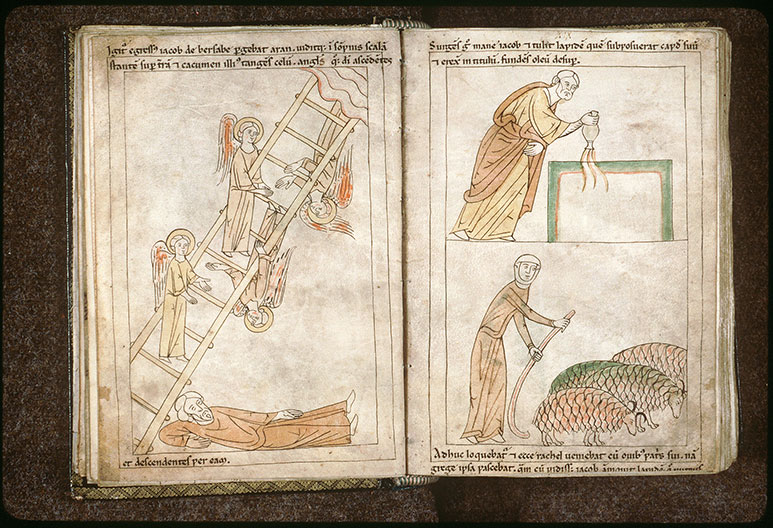 Igit᷑ egressꝰ iacob de bersabe ꝑgebat aran. uiditqꝫ i sōpnis scalā
stantē suꝑ t̄rā ⁊ cacumen illiꝰ tangēs celū. angl̄s qꝫ dī ascēdētes
et descendentes per eam.
Surgēs g̊ mane iacob ⁊ tulit lapidē quē subposuerat capiti suo
⁊ erexit in titulū. fundēs oleū desuꝑ.
Adhuc loquebat᷑ ⁊ ecce rachel ueniebat cū ouibꝰ patris sui. nā
gregē ipsa pascebat. cū uidiss; iacob. amouit lapidē